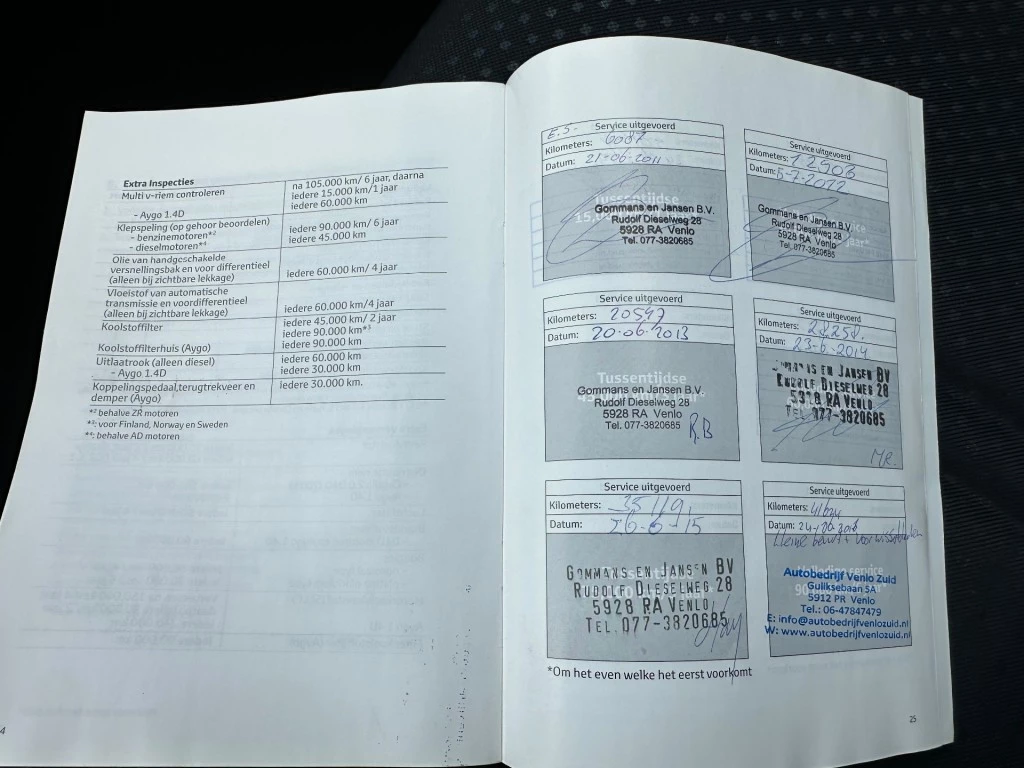 Extra Inspecties
Multi v-riem controleren
na 105.000 km/ 6 jaar, daarna
iedere 15.000 km/1 jaar
- Aygo 1.4D
iedere 60.000 km
Klepspeling (op gehoor beoordelen)
- benzinemotoren*2
iedere 90.000 km/ 6 jaar
- dieselmotoren*4
iedere 45.000 km
Olie van handgeschakelde
versnellingsbak en voor differentieel
(alleen bij zichtbare lekkage)
iedere 60.000 km/ 4 jaar
Vloeistof van automatische
transmissie en voordifferentieel
(alleen bij zichtbare lekkage)
iedere 60.000 km/4 jaar
Koolstoffilter
iedere 45.000 km/ 2 jaar
iedere 90.000 km*3
Koolstoffilterhuis (Aygo)
iedere 90.000 km
Uitlaatrook (alleen diesel)
iedere 60.000 km
- Aygo 1.4D
iedere 30.000 km
Koppelingspedaal,terugtrekveer en
demper (Aygo)
iedere 30.000 km.
*2 behalve ZR motoren
*3: voor Finland, Norway en Sweden
*4: behalve AD motoren
4
E.S. Service uitgevoerd
Kilometers: 6087
Datum: 21-06-2011
Tussentijdse
Gommans en Jansen B.V.
Rudolf Dieselweg 28
5928 RA Venlo
Tel. 077-3820685
Service uitgevoerd
Kilometers: 12903
Datum: 5-7-2012
Gommans en Jansen B.V.
Rudolf Dieselweg 28
5928 RA Venlo
Tel. 077-3820685
Service uitgevoerd
Kilometers: 20547
Datum: 20-06-2013
Tussentijdse
Gommans en Jansen B.V.
Rudolf Dieselweg 28
5928 RA Venlo
Tel. 077-3820685
R.B
Service uitgevoerd
Kilometers: 28258.
Datum: 23-6-2014
GOMMANS EN JANSEN BV
RUDOLF DIESELWEG 28
5928 RA VENLO
TEL. 077-3820685
MR.
Service uitgevoerd
Kilometers: 35119,
Datum: 26-6-15
GOMMANS EN JANSEN BV
RUDOLF DIESELWEG 28
5928 RA VENLO
TEL. 077-3820685
Service uitgevoerd
Kilometers:
Datum: 24-06-2016
kleine beurt +
Volledige service
Autobedrijf Venlo Zuid
Guliksebaan 5A
5912 PR Venlo
Tel.: 06-47847479
E: info@autobedrijfvenlozuid.nl
W: www.autobedrijfvenlozuid.nl
*Om het even welke het eerst voorkomt
25